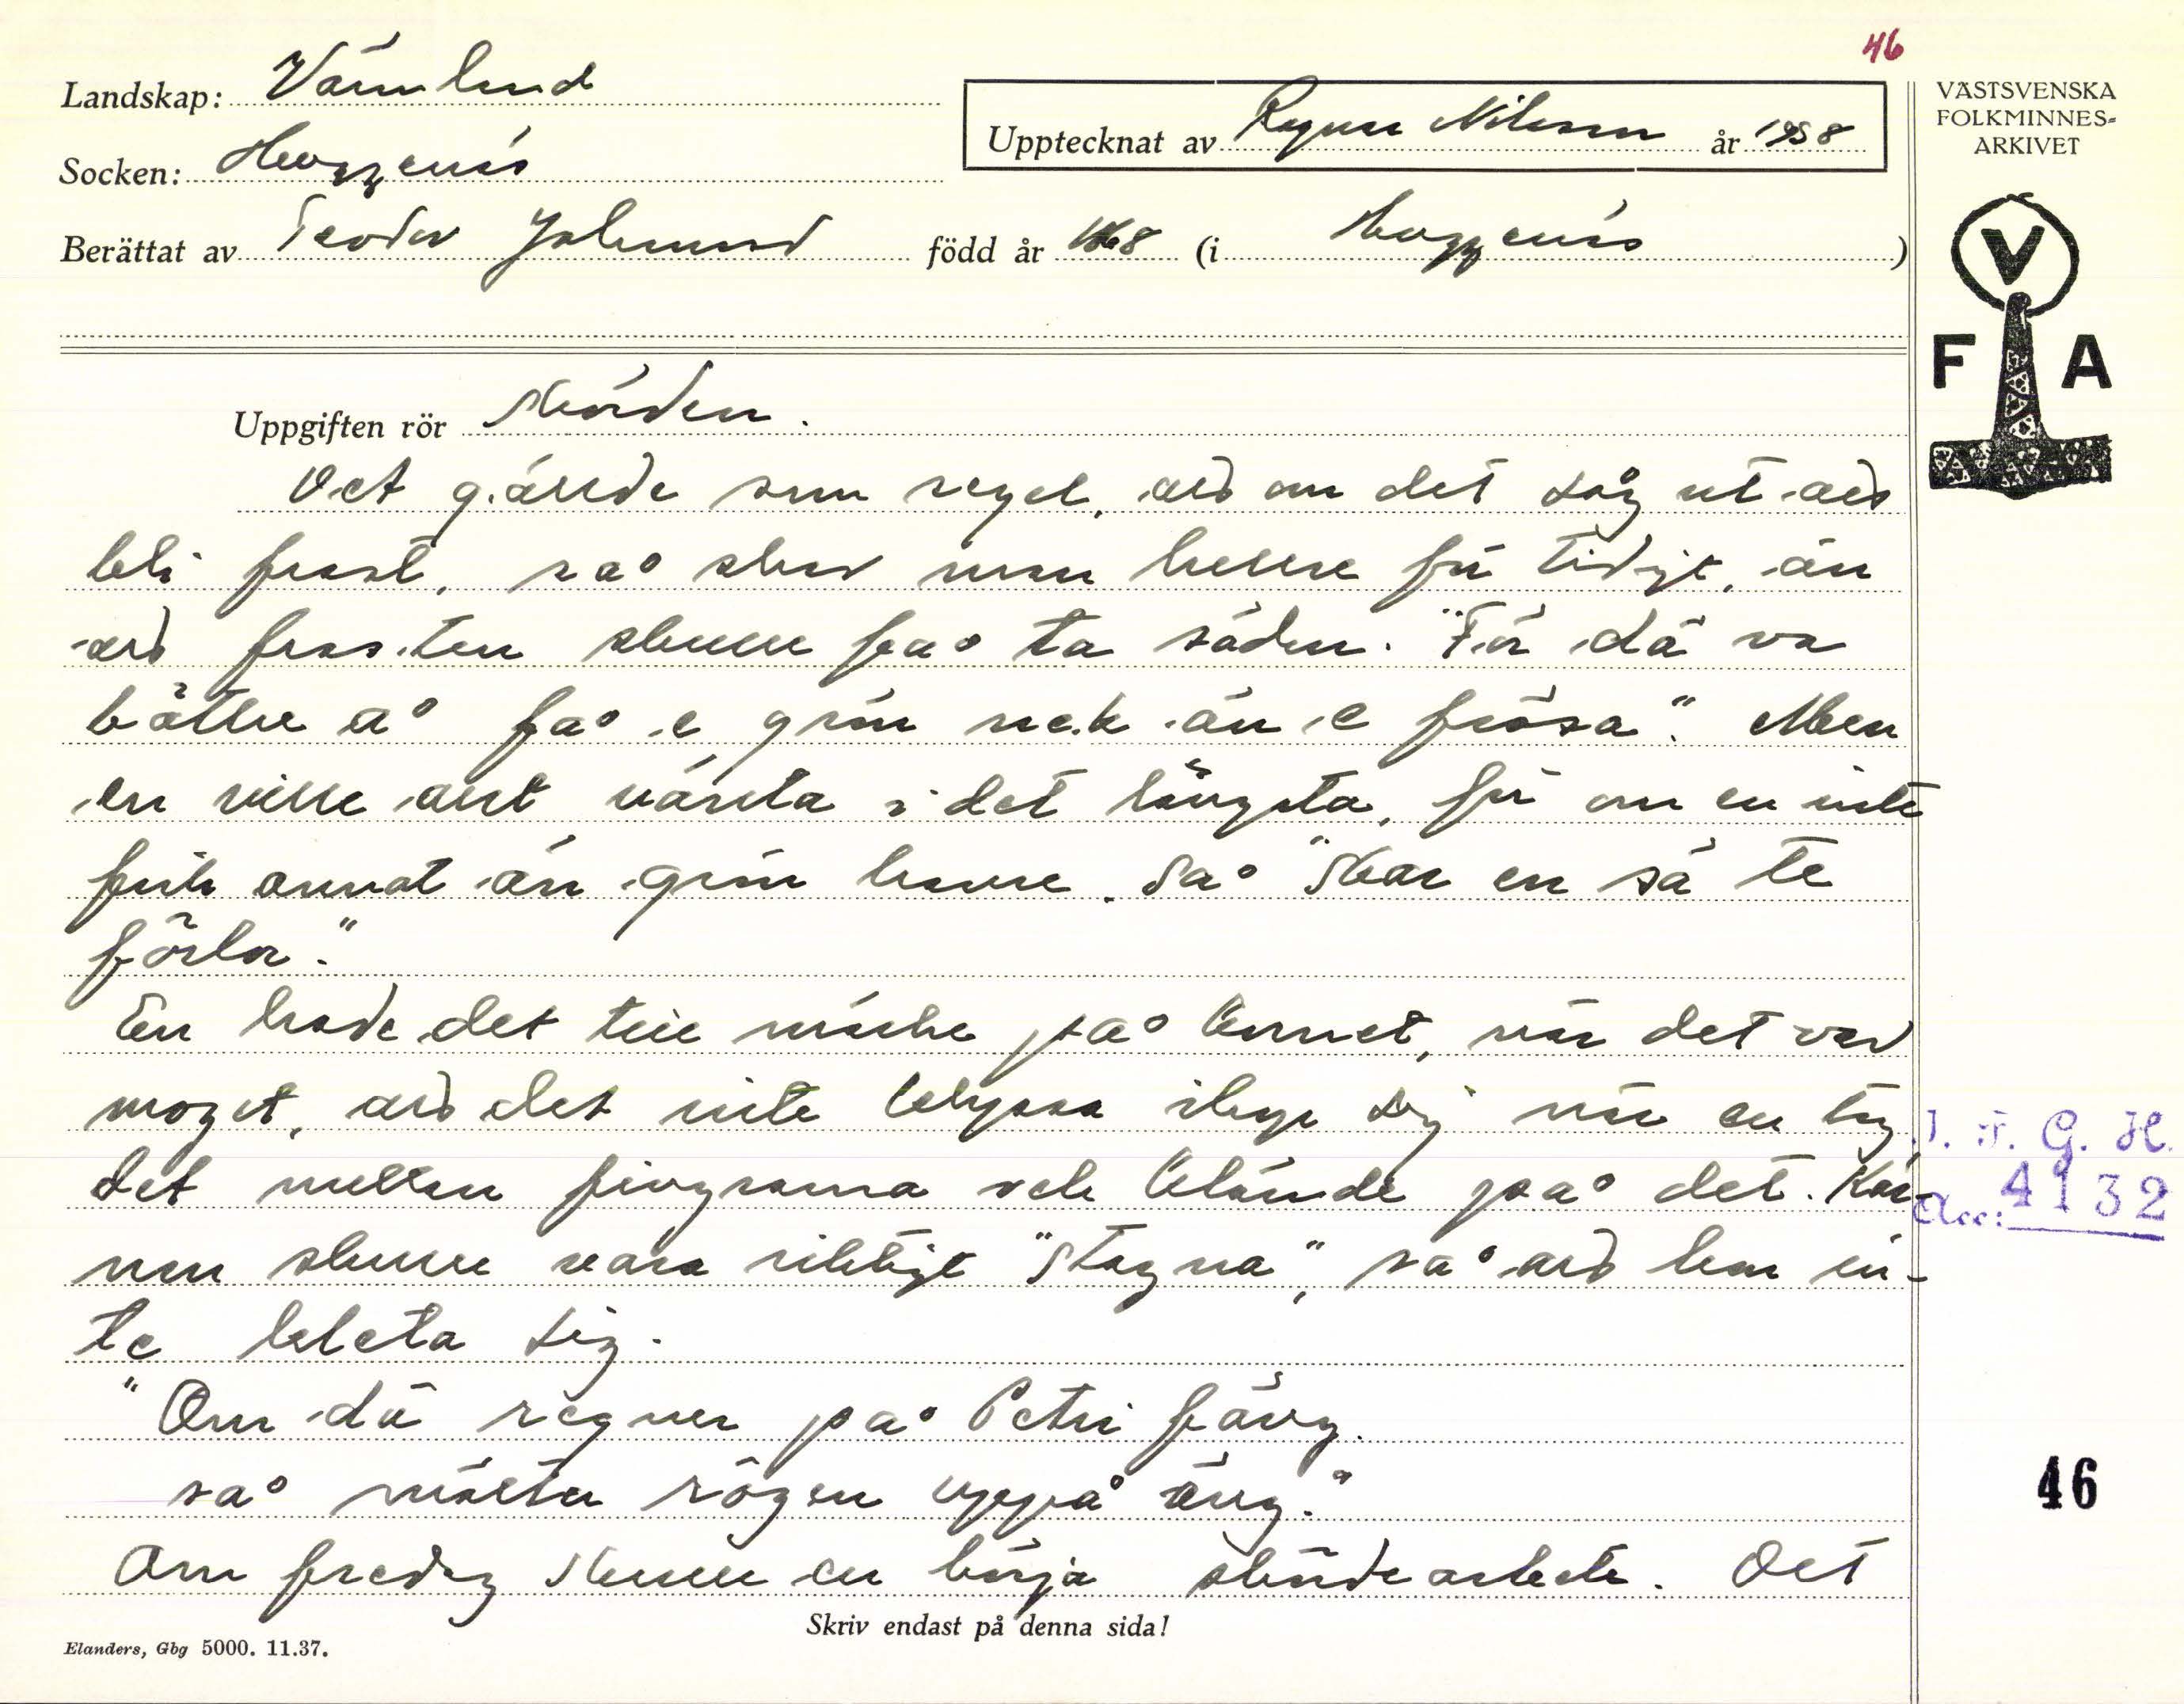 46
Landskap: Värmland
Upptecknat av Ragnar Nilsson år 1938
VÄSTSVENSKA
FOLKMINNES-
ARKIVET
Socken: Huggenäs
Berättat av Teodor född år 1868 (i Huggenäs)
V
F A
Uppgiften rör Skörden.
Det gällde som regel, att om det såg ut att
bli frost, så skar man hellre för tidigt, än
att frosten skulle få ta säden. "För dä va
bätter å få e grön nek än e frösa." Men
en ville allt vänta i det längsta, för om en inte
fick annat än grön halm, så "skar en sä te
förlor."
En hade det till märke på kornet, när det var
moget, att det inte klyssa ihop sej när en tog
det mellan fingrarna och klämde på det. Kär-
nan skulle vara riktigt "stagna", så att hon in-
te kleta sig.
"Om dä regner på Petri fäng
så mälter rögen uppå äng."
Om fredag skulle en börja skördearbete. Det
J. F. G. H.
Acc: 4132
46
Skriv endast på denna sida!
Elanders, Gbg 5000. 11.37.